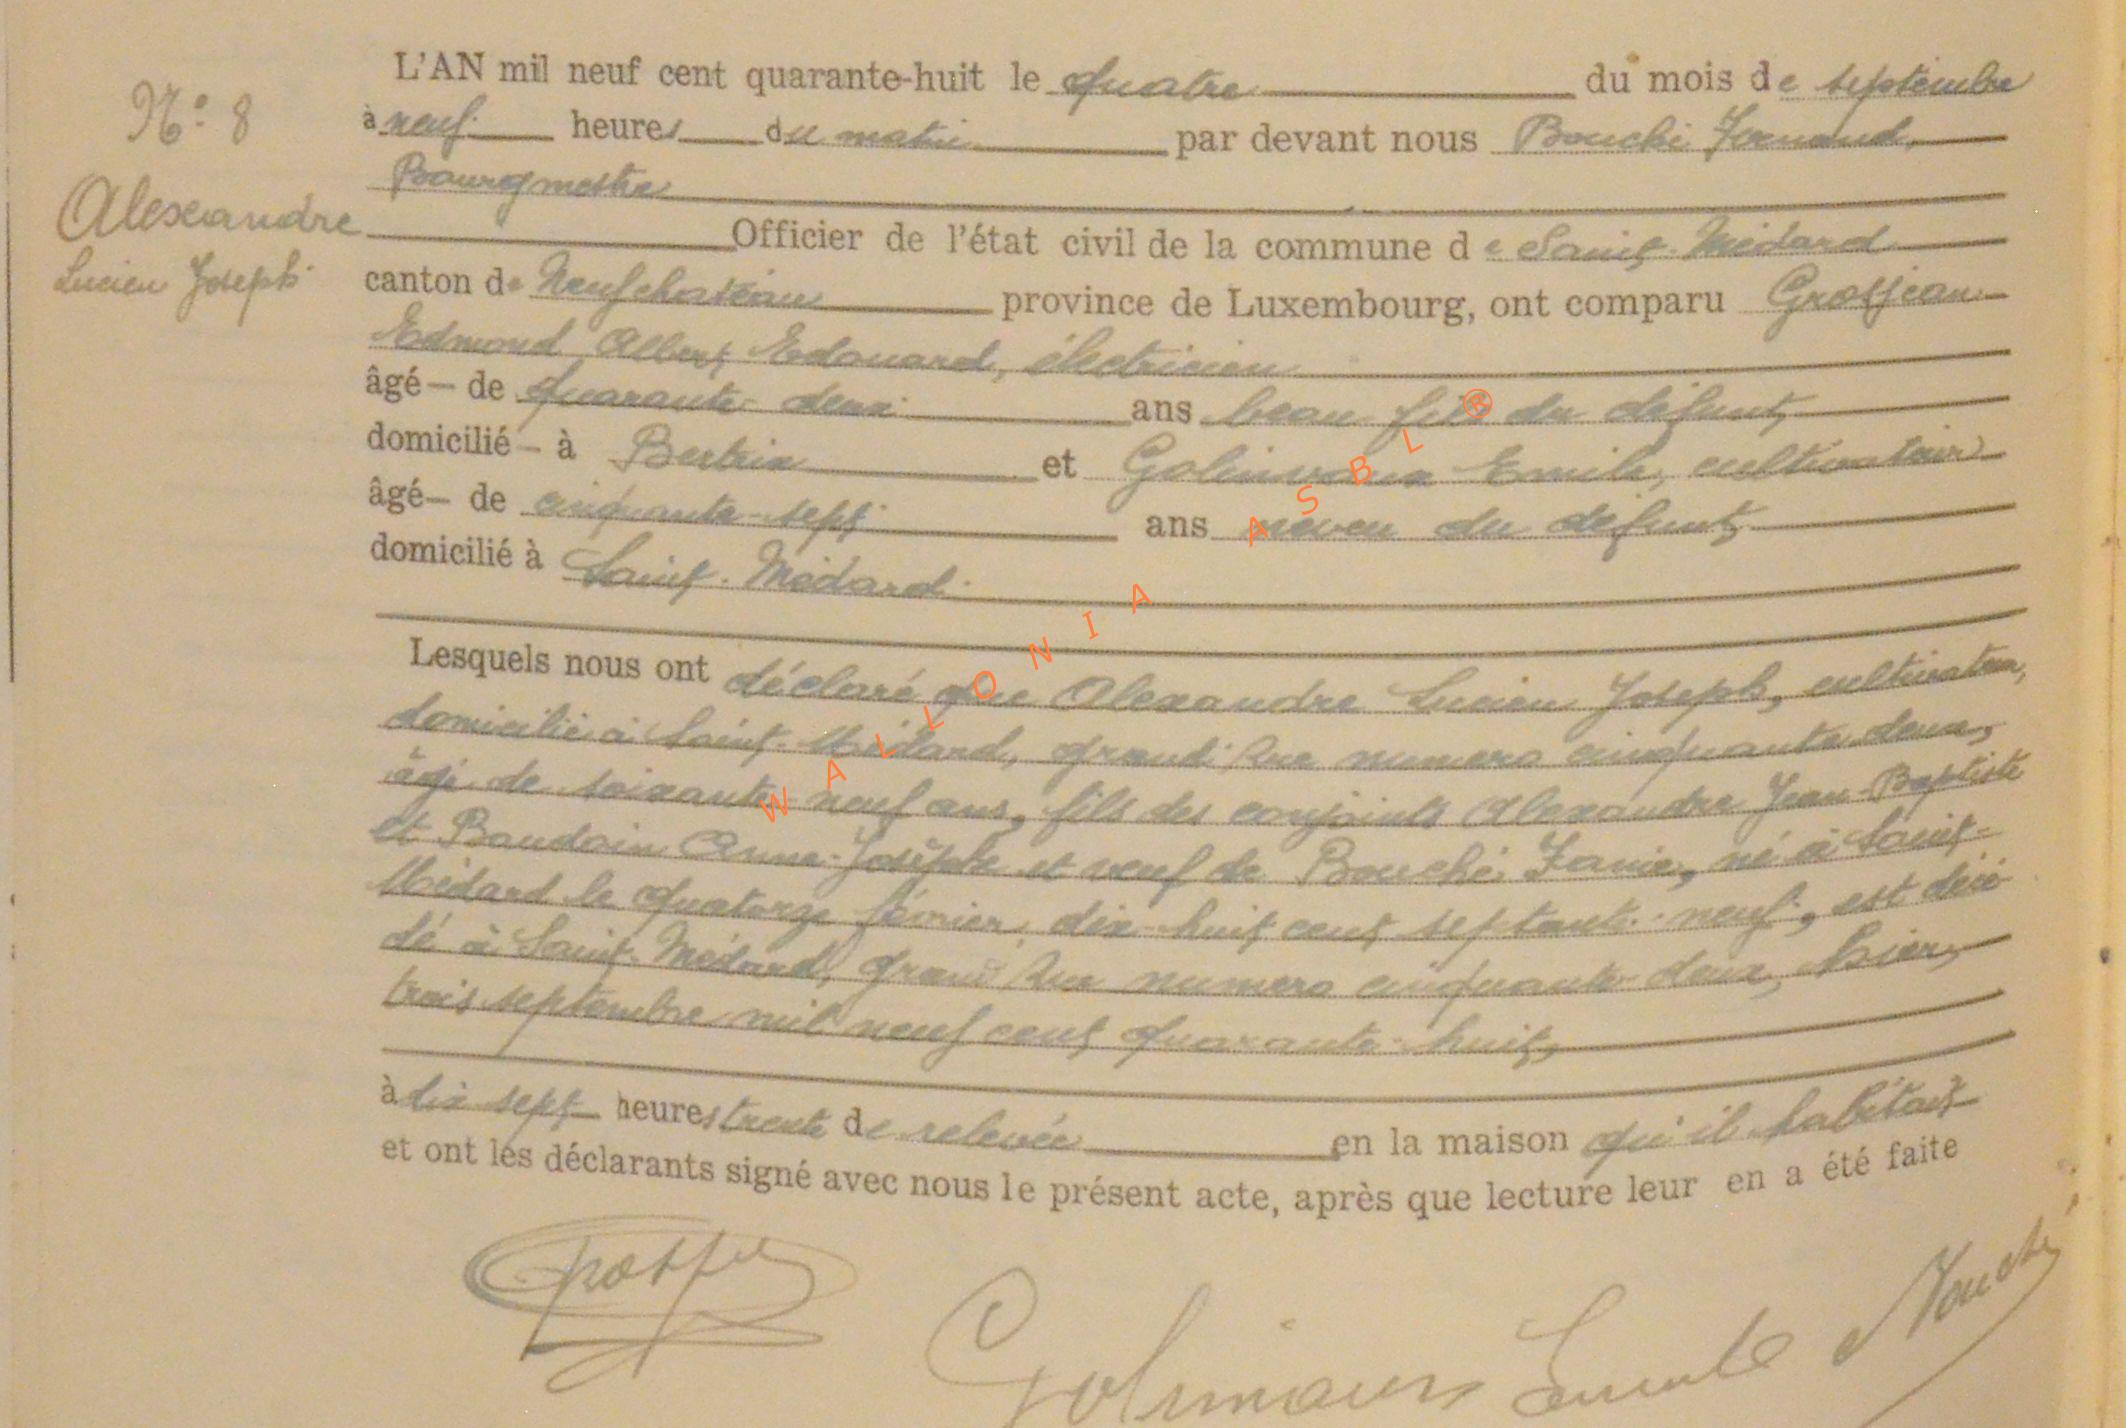 N° 8
Alexandre
Lucien Joseph
L'AN mil neuf cent quarante-huit le quatre du mois de septembre
à neuf heures du matin par devant nous Bouché Fernand,
Bourgmestre
Officier de l'état civil de la commune de Saint-Médard
canton de Neufchateau province de Luxembourg, ont comparu Grosjean
Edmond Albert Edouard, électricien
âgé — de quarante-deux ans beau-fils du défunt,
domicilié — à Bertrix et Golinvaux Emile, cultivateur
âgé — de cinquante-sept ans neveu du défunt,
domicilié à Saint-Médard
Lesquels nous ont déclaré que Alexandre Lucien Joseph, cultivateur,
domicilié à Saint-Médard, grand'Rue numero cinquante deux,
âgé de soixante-neuf ans, fils des conjoints Alexandre Jean-Baptiste
et Baudoin Anne-Josèphe et veuf de Bouché, né à Saint-
Médard le quatorze février dix-huit cent septante-neuf, est décé
dé à Saint-Médard, grand'Rue numero cinquante-deux, hier,
trois septembre mil neuf cent quarante-huit,
à dix sept heures trente de relevée en la maison qu'il habitait
et ont les déclarants signé avec nous le présent acte, après que lecture leur en a été faite
Golinvaux Emile Bouché
WALLONIA ASBL ®